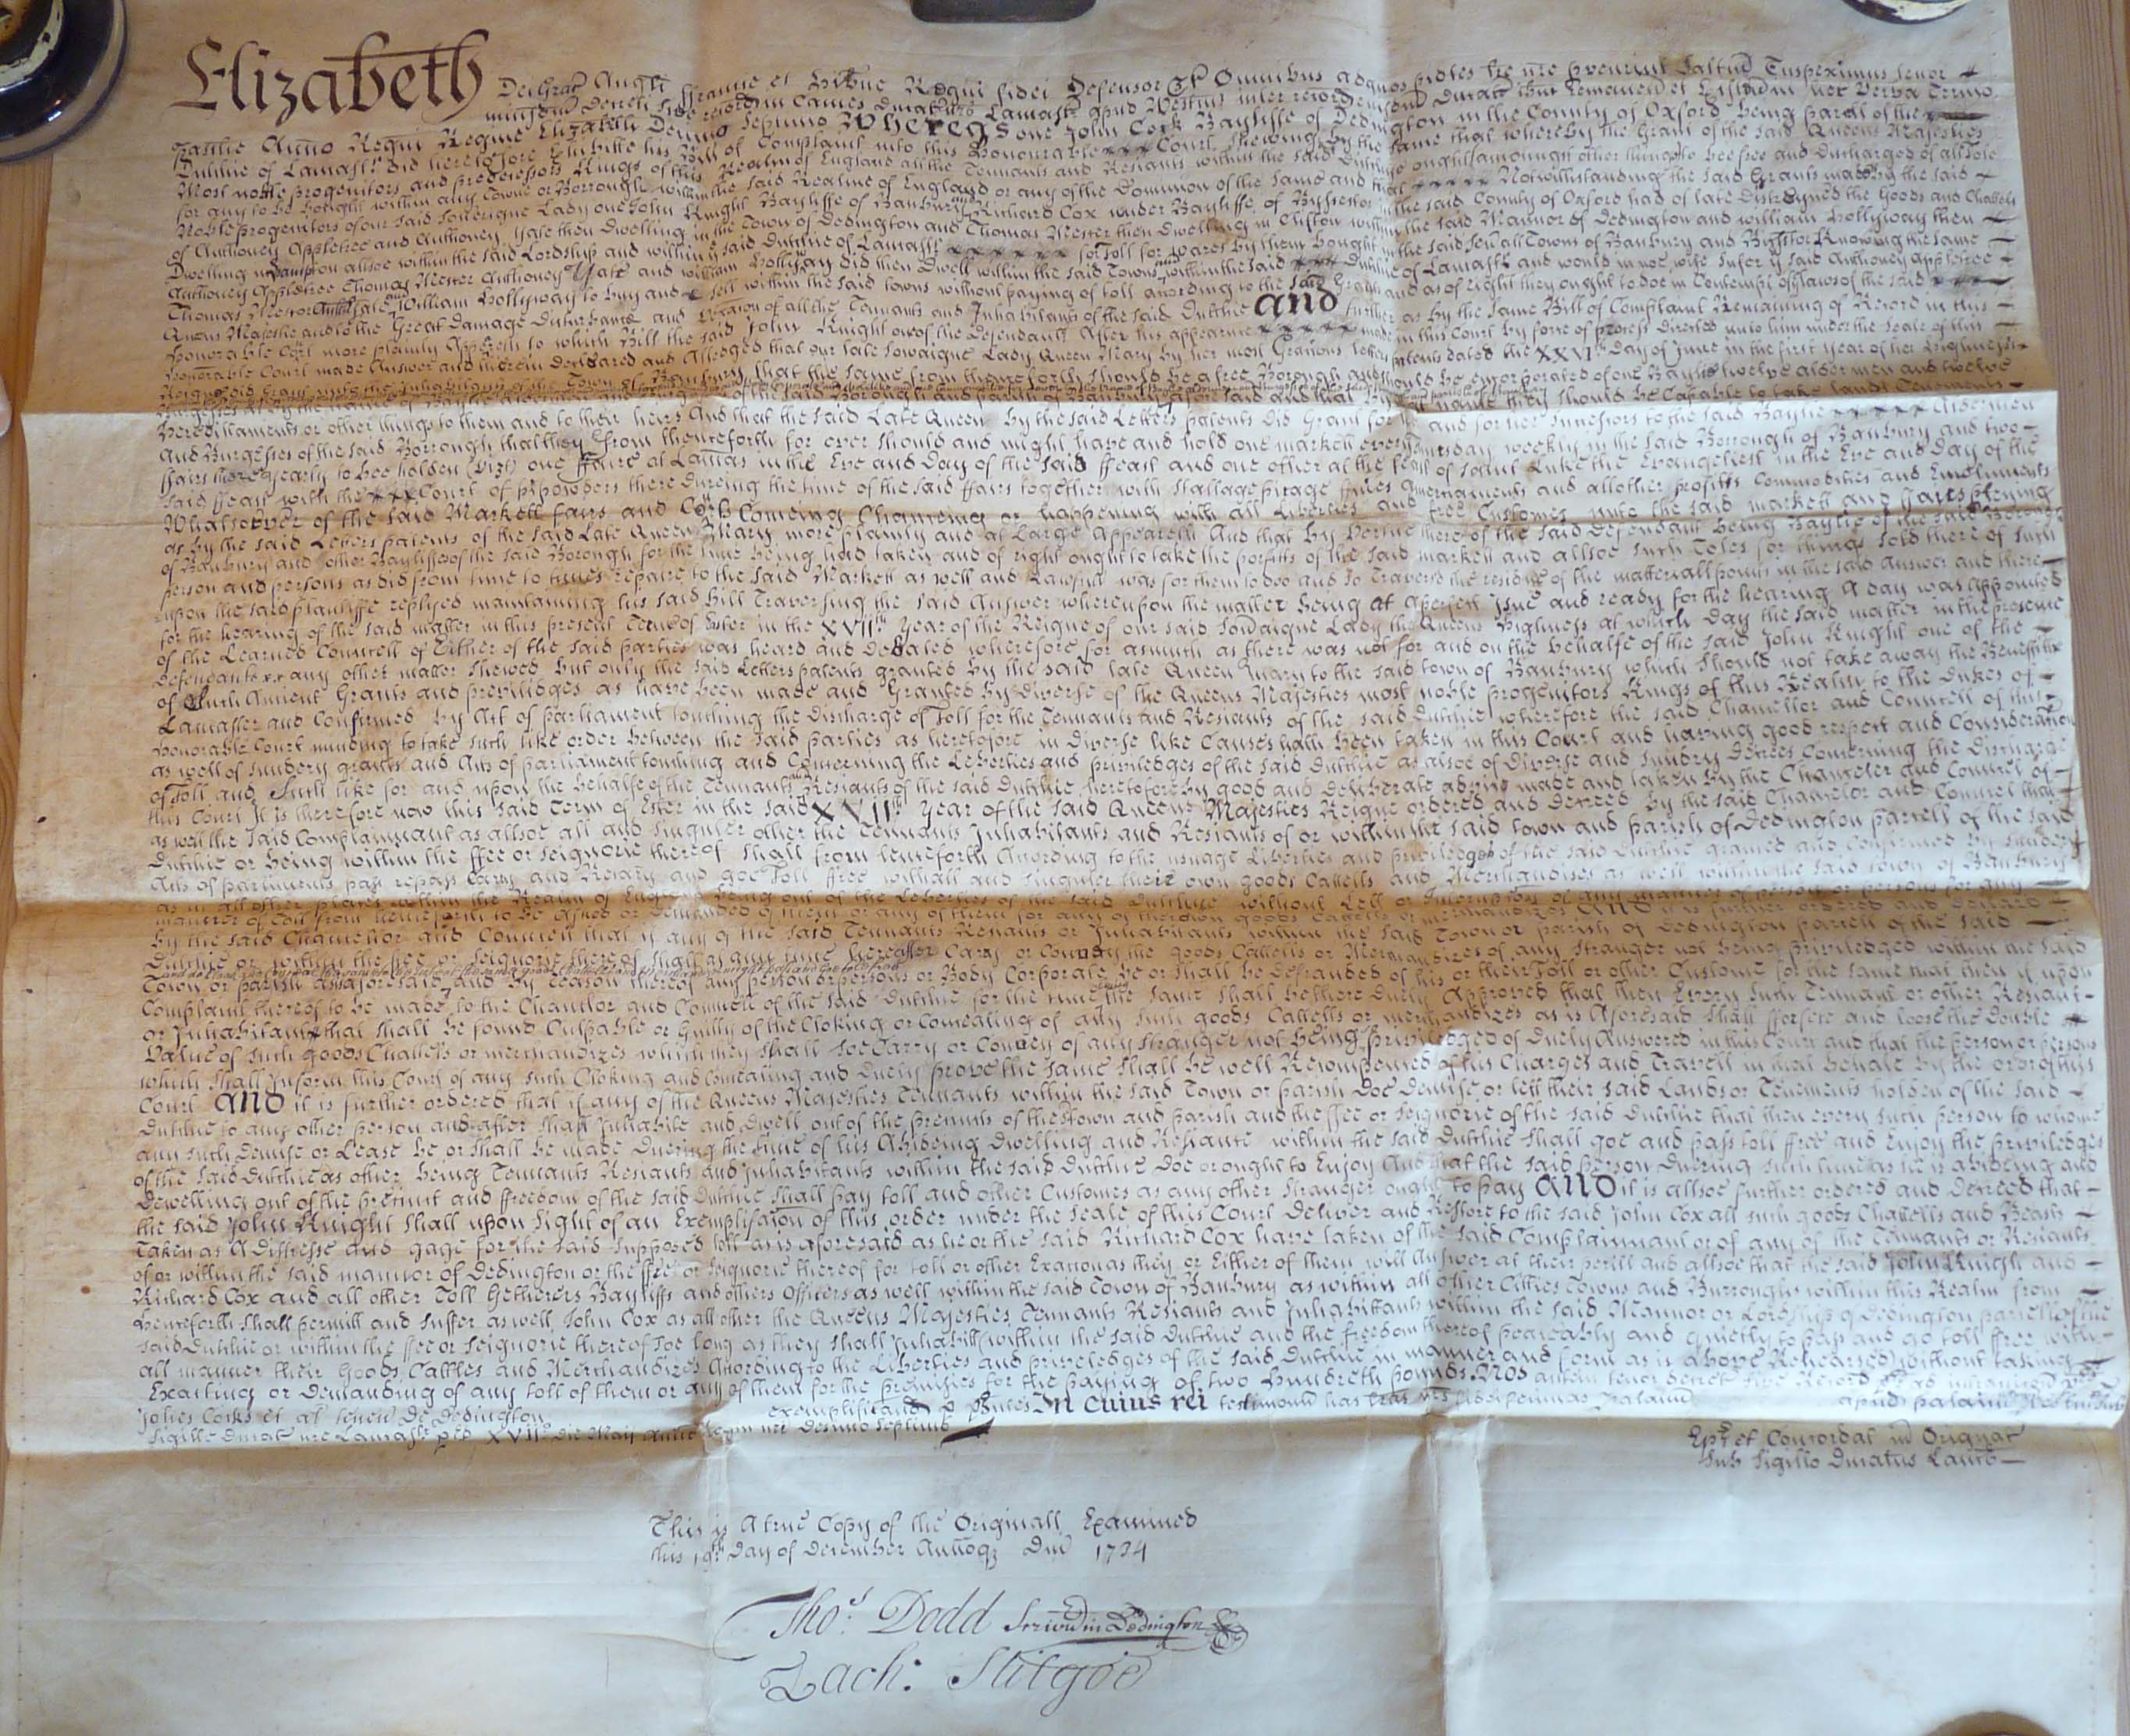 Elizabeth Dei Grat Angli ffrancie et Hibnie Regni fidei Defensor Omnibus ad quos
Pasche Anno Regni Regine Elizabeth Decimo Septimo Whereas one John Cock Bayliffe of Dedington in the County of Oxford being parcell of the
Dutchie of Lamastr did heretofore Exhibitte his Bill of Complaint into this Honourable Court shewing by the same that whereby the Grant of the said Queens Majesties
Most noble progenitors and predecessors Kings of this Realme of England all the Tennants and Resiants within the said Dutchie ought amongst other things to bee free and Discharged of all Tole
for any to be bought within any Towne or Borrough within the said Realme of England or any of the Dominion of the same and that Notwithstanding the said Grants made by the said
Noble progenitors of our said Sovereigne Lady one John Knight Bayliffe of Banbury and Richard Cox under Bayliffe of Bysseter in the said County of Oxford had of late Distreyned the Goods and Chattels
of Anthoney Appletree and Anthoney Yate then Dwelling in the Town of Dedington and Thomas Mester then Dwelling in Clifton within the said Mannor of Dedington and William Hollyway then
Dwelling in Hampton allsoe within the said Lordship and within y said Dutchie of Lamastr for Toll for wares by them bought in the said sevall Towns of Banbury and Bysseter Knowing the same
Anthoney Appletree Thomas Mester Anthoney Yate and William Hollyway did then Dwell within the said Towns and within the said Dutchie of Lamastr and would in noe wise Suffer y said Anthoney Appletree
Thomas Mester Anthony Yate and William Hollyway to buy and sell within the said towns without paying of toll according to the said Grants and as of right they ought to doe in Contempt of the laws of the said
Queens Majestie and to the Great Damage Disturbance and Vexation of all the Tennants and Inhabitants of the said Dutchie And further as by the same Bill of Complaint Remaining of Record in this
Honorable Cort more plainly Appereth to which Bill the said John Knight one of the Defendants After his appearance made in this Court by force of process Directed unto him under the Seale of this
Honorable Court made Answer and therein Declared and Alledged that our late Sovraigne Lady Queen Mary by her most Gracious letters patents dated the XXVIth Day of June in the first year of her Highness
Reigne did Grant unto the Inhabitants of the Town of Banbury that the same from thenceforth should be a free Borough and should be encorporated of one Baylie twelve aldermen and twelve
of the said Borough and parish of Banbury afore said and that by that name they should be Capable to take lands Tenements
Hereditaments or other things to them and to their heirs And that the said Late Queen By the said Letters patents Did Grant for her and for her Successors to the said Baylie Aldermen
And Burgesses of the said Borrough that they from thenceforth for ever should and might have and hold one markett every weekly in the said Borrough of Banbury and two
ffairs there yearly to bee holden (vizt) one ffaire at Lamas in the Eve and Day of the said ffeast and one other at the feast of Saint Luke the Evangelist in the Eve and Day of the
said ffeast with the Court of pypowders there dureing the time of the said ffairs together with Stallage picage ffines amerciaments and all other profitts Commodities and Emoluments
Whatsoever of the said Markett fairs and Corts Comeing Chancing or happening with all Liberties and free Customes unto the said markett and ffairs
as by the said Letters patents of the said Late Queen Mary more plainly and at Large Appeareth And that By Vertue there of the said Defendant Being Baylie of the said Borough
of Banbury and other Bayliffes of the said Borough for the time being had taken and of right ought to take the porfitts of the said markett and allsoe such Toles for things sold there of such
person and persons as did from time to times repaire to the said Markett as well and Lawfull was for them to doe and so Travers'd the residue of the materiall points in the said Answer and there
upon the said plantiffe replyed maintaining his said Bill Traversing the said Answer whereupon the matter being at a perfett Issue and ready for the hearing A day was Appointed
for the hearing of the said matter in this present Term of Ester in the XVIIth year of the Reigne of our said Sovraigne Lady the Queens Highness at which Day the said matter in the presence
of the Learned Councell of Either of the said parties was heard and Debated wherefore for asmuch as there was not for and on the behalfe of the said John Knight one of the
Defendants any other matter shewed but only the said Letters patents granted by the said late Queen Mary to the said town of Banbury which should not take away the Benefitt
of such Antient Grants and previlidges as have been made and Granted By Diverse of the Queens Majesties most noble progenitors Kings of this Realm to the Dukes of
Lancaster and Confirmed By Act of parliament touching the Discharge of Toll for the Tennants and Resiants of the said Dutchie wherefore the said Chancellor and Councell of this
Honorable Court minding to take such like order between the said parties as heretofore in Diverse like Causes hath been taken in this Court and having good respect and Consideration
as well of sundery grants and Acts of parliament touching and Concerning the Leberties and priviledges of the said Dutchie as alsoe of Diverse and sundry Decrees Concerning the Discharge
of Toll and Such like for and upon the behalfe of the Tennants and Resiants of the said Dutchie heretofore by good and deliberate advise made and taken by the Chanceler and Councel of
this Court It is therefore now this said Term of Ester in the said XVIIth Year of the said Queens Majesties Reigne ordered and Decreed By the said Chancelor and Councel that
as well the said Complainnant as allsoe all and singuler other the Tennants Inhabitants and Resiants of or within the said town and parish of Dedington parcell of the said
Dutchie or Being within the ffee or seignorie thereof shall from henceforth According to the usuage Liberties and priviledges of the said Dutchie granted and Confirmed By sundery
Acts of parliments pass repass Carry and Recary and goe Toll ffree withall and singuler their own goods Cattells and Merchandises as well within the said town of Banbury
as in all other places within the Realm of England being out of the Leberties of the said Dutchie without Lett or Interuption of any manner of person or persons for any
manner of Toll from henceforth to be Asked or Demanded of them or any of them for any of their own goods Cattells or merchandizes And it is further ordered and Decreed
by the said Chancellor and Councell that if any of the said Tennants Resiants or Inhabitants within the said Town or parish of Dedington parcell of the said
Dutchie or within the ffee or seignorie thereof shall at any time hereafter Cary or Convey the goods Cattells or Merchandizes of any stranger not being priviledged within the said
Town or parish as aforesaid and By reason thereof any person or persons or Body Corporate be or shall be defrauded of his or their Toll or other Custome for the same that then if upon
Complaint thereof to be made to the Chancelor and Councell of the said Dutchie for the time being the same shall be there Duely Approved that then Every such Tennant or other Resiant
or Inhabitant that shall be found Culpable or Guilty of the Cloking or Concealing of any such goods Cattells or merchandizes as is Aforesaid shall fforfete and loose the Double
Value of such goods Chattells or merchandizes which they shall soe Carry or Convey of any stranger not Being priviledged of Duely Answered in this Court and that the person or persons
which shall Inform this Court of any such Cloking and Concealing and Duely prove the same shall be well Recompenced of his Charges and Travell in that behalfe By the order of this
Court And it is further ordered that if any of the Queens Majesties Tennants within the said Town or parish Doe Demise or lett their said Lands or Tenements holden of the said
Dutchie to any other person and after shall Inhabite and Dwell out of the precincts of the Town and parish and the ffee or Seignorie of the said Dutchie that then every such person to whome
any such Demise or Lease be or shall be made Duering the time of his Abideing Dwelling and Resiante within the said Dutchie shall goe and pass toll free and enjoy the priviledges
of the said Dutchie as other being Tennants Resiants and Inhabitants within the said Dutchie Doe or ought to Enjoy And that the said person Duering such time as he is abideing and
Dewelling out of the precinct and ffreedom of the said Dutchie shall pay toll and other Customes as any other stranger ought to pay And it is allsoe further ordered and Decreed that
the said John Knight shall upon sight of an Exemplification of this order under the Seale of this Court Deliver and Restore to the said John Cox all such goods Chattells and Beasts
Taken as A distresse and gage for the said supposed toll as is aforesaid as he or the said Richard Cox have taken of the said Complainnant or of any of the Tennants or Resiants
of or within the said mannor of Dedington or the ffee or Seignorie thereof for toll or other Exaction as they or Either of them will Answer at their perill and allsoe that the said John Knight and
Richard Cox and all other Toll Getherers Bayliffs and others Officers as well within the said Town of Banbury as within all other Citties Towns and Burroughs within this Realm from
Henceforth shall permitt and suffer as well John Cox as all other the Queens Majesties Tennants Resiants and Inhabittants within the said Mannor or Lordship of Dedington parcell of the
said Dutchie or within the ffee or Seignorie thereof soe long as they shall Inhabitt within the said Dutchie and the freedom thereof peaceably and quietly to pass and go toll ffree with
all manner their Goods Cattles and Merchandizes According to the Liberties and priveledges of the said Dutchie in manner and form as is above Rehearsed without taking
Exacting or Demanding of any toll of them or any of them for the premisses for the paying of two Hundreth pounds Nos autem tenor
Johes Cocks et al De Dedington exemplificand p psentes In cuius rei testimoniu has
Sigillo Lamastr XVII die Maij Anno Decimo Septimo
Exr et Concordat Originat
Sub Sigillo Ducatus Lanc
This is A true Copy of the Originall Examined
this 19th Day of December Annoq Dni 1734
Thos. Dodd Scriv in Dedington
Zach: Stilgoe